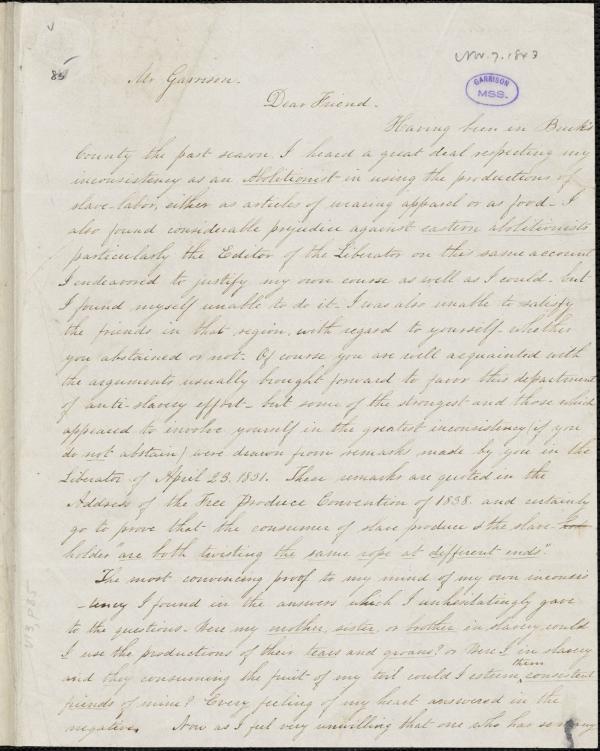 Nov. 7. 1843
85
GARRISON
MSS.
Mr Garrison.
Dear Friend.
Having been in Buck's
County the past season, I heard a great deal respecting my
inconsistency as an Abolitionist in using the productions of
slave-labor, either as articles of wearing apparel or as food. I
also found considerable prejudice against eastern abolitionists
particularly the Editor of the Liberator on this same account
I endeavored to justify my own course as well as I could - but
I found myself unable to do it - I was also unable to satisfy
the friends in that region, with regard to yourself - whether
you abstained or not. Of course you are well acquainted with
the arguments usually brought forward to favor this department
of anti-slavery effort - but some of the strongest and those which
appeared to involve yourself in the greatest inconsistency (if you
do not abstain) were drawn from remarks made by you in the
Liberator of April 23. 1831. These remarks are quoted in the
Address of the Free Produce Convention of 1838. and certainly
go to prove that the consumer of slave produce & the slave-
holder "are both twisting the same rope at different ends".
The most convincing proof to my mind of my own inconsis
-tency I found in the answers which I unhesitatingly gave
to the questions - Were my mother, sister, or brother in slavery could
I use the productions of their tears and groans? or Were I in slavery
and they consuming the fruit of my toil could I esteem them consistent
friends of mine? Every feeling of my heart answered in the
negative. Now as I feel very unwilling that one who has so many
V13, P85